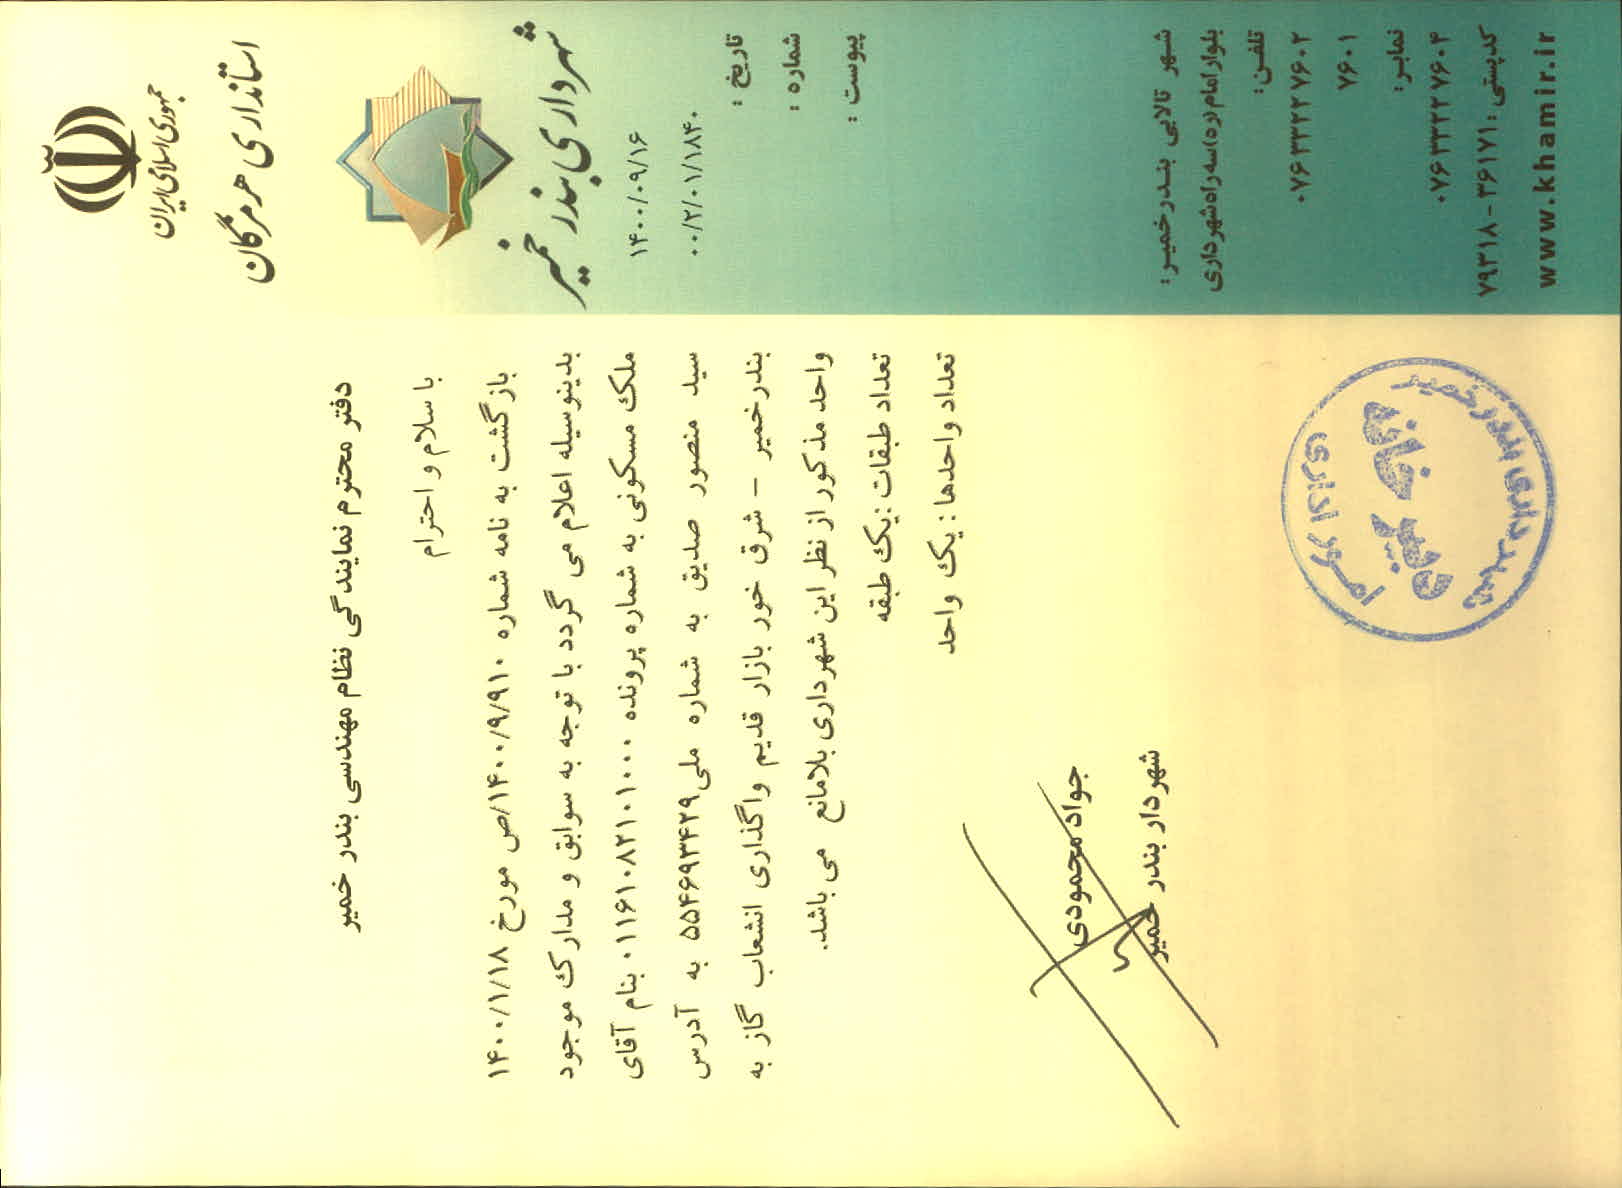 جمهوری اسلامی ایران
استانداری هرمزگان
شهرداری بندر خمیر
تاریخ : ۱۴۰۰/۰۹/۱۶
شماره : ۰۰/۲/۰۱/۱۸۴۰
پیوست :
دفتر محترم نمایندگی نظام مهندسی بندر خمیر
با سلام و احترام
بازگشت به نامه شماره ۱۴۰۰/۹/۹۱۰/ص مورخ ۱۴۰۰/۱/۱۸
بدینوسیله اعلام می گردد با توجه به سوابق و مدارک موجود
ملک مسکونی به شماره پرونده ۰۱۱۶۱۰۸۲۱۰۱۰۰۰ بنام آقای
سید منصور صدیق به شماره ملی ۵۵۴۶۹۳۴۲۹ به آدرس
بندرخمیر – شرق خور بازار قدیم واگذاری انشعاب گاز به
واحد مذکور از نظر این شهرداری بلامانع می باشد.
تعداد طبقات :یک طبقه
تعداد واحدها : یک واحد
جواد محمودی
شهردار بندر خمیر
شهرداری بندر خمیر
دبیر خانه
امور اداری
شهر تالابی بندرخمیر :
بلوار امام(ره)سه راه شهرداری
تلفن:
۰۷۶۳۳۲۲۷۶۰۲
۷۶۰۱
نمابر:
۰۷۶۳۳۲۲۷۶۰۴
کدپستی :۳۶۱۷۱ - ۷۹۳۱۸
www.khamir.ir